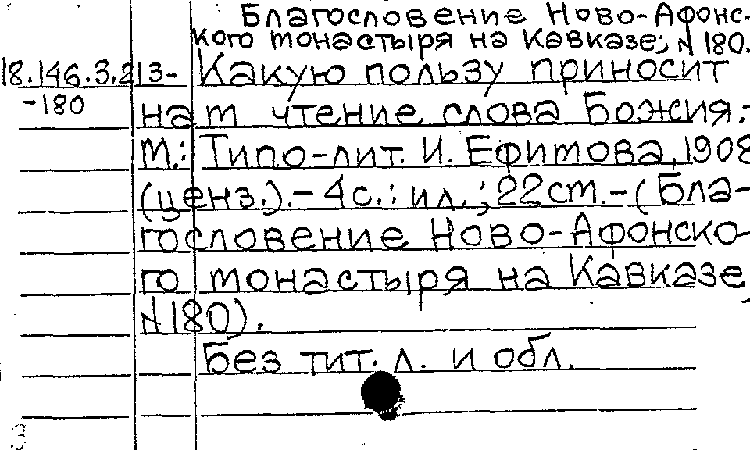 Благословение Ново-Афонс-
кого монастыря на Кавказе; N 180.
18.146.3.213- Какую пользу приносит
-180 нам чтение слова Божия.-
М.: Типо-лит. И. Ефимова, 1908
(ценз.).-4с.: ил.; 22см.-(Бла-
гословение Ново-Афонско-
го монастыря на Кавказе,
N 180).
Без тит. л. и обл.